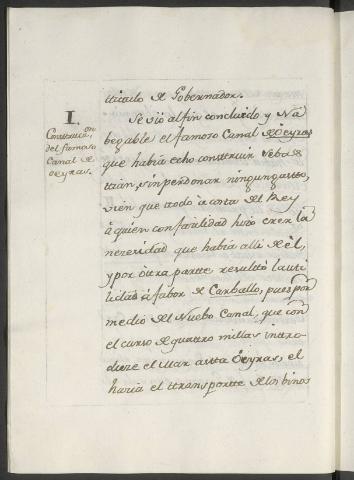 ttitulo de Gobernador.
I.
Construcc.on
del famoso
Canal de
oeyras.
Se vió al fin concluido y Na
begable el famoso Canal de Oeyras
que habia echo construir Sebas
ttian, sin perdonar ningun gastto,
vien que ttodo a costa del Rey
á quien con facilidad hizo creer la
necesidad que habia alli de él,
y por ottra partte resulttó la utti
lidad á fabor de Carballo, pues por
medio del Nuebo Canal, que con
el curso de quattro millas inttro
duce el Mar astta Oeyras, el
hacia el ttransportte de los binos